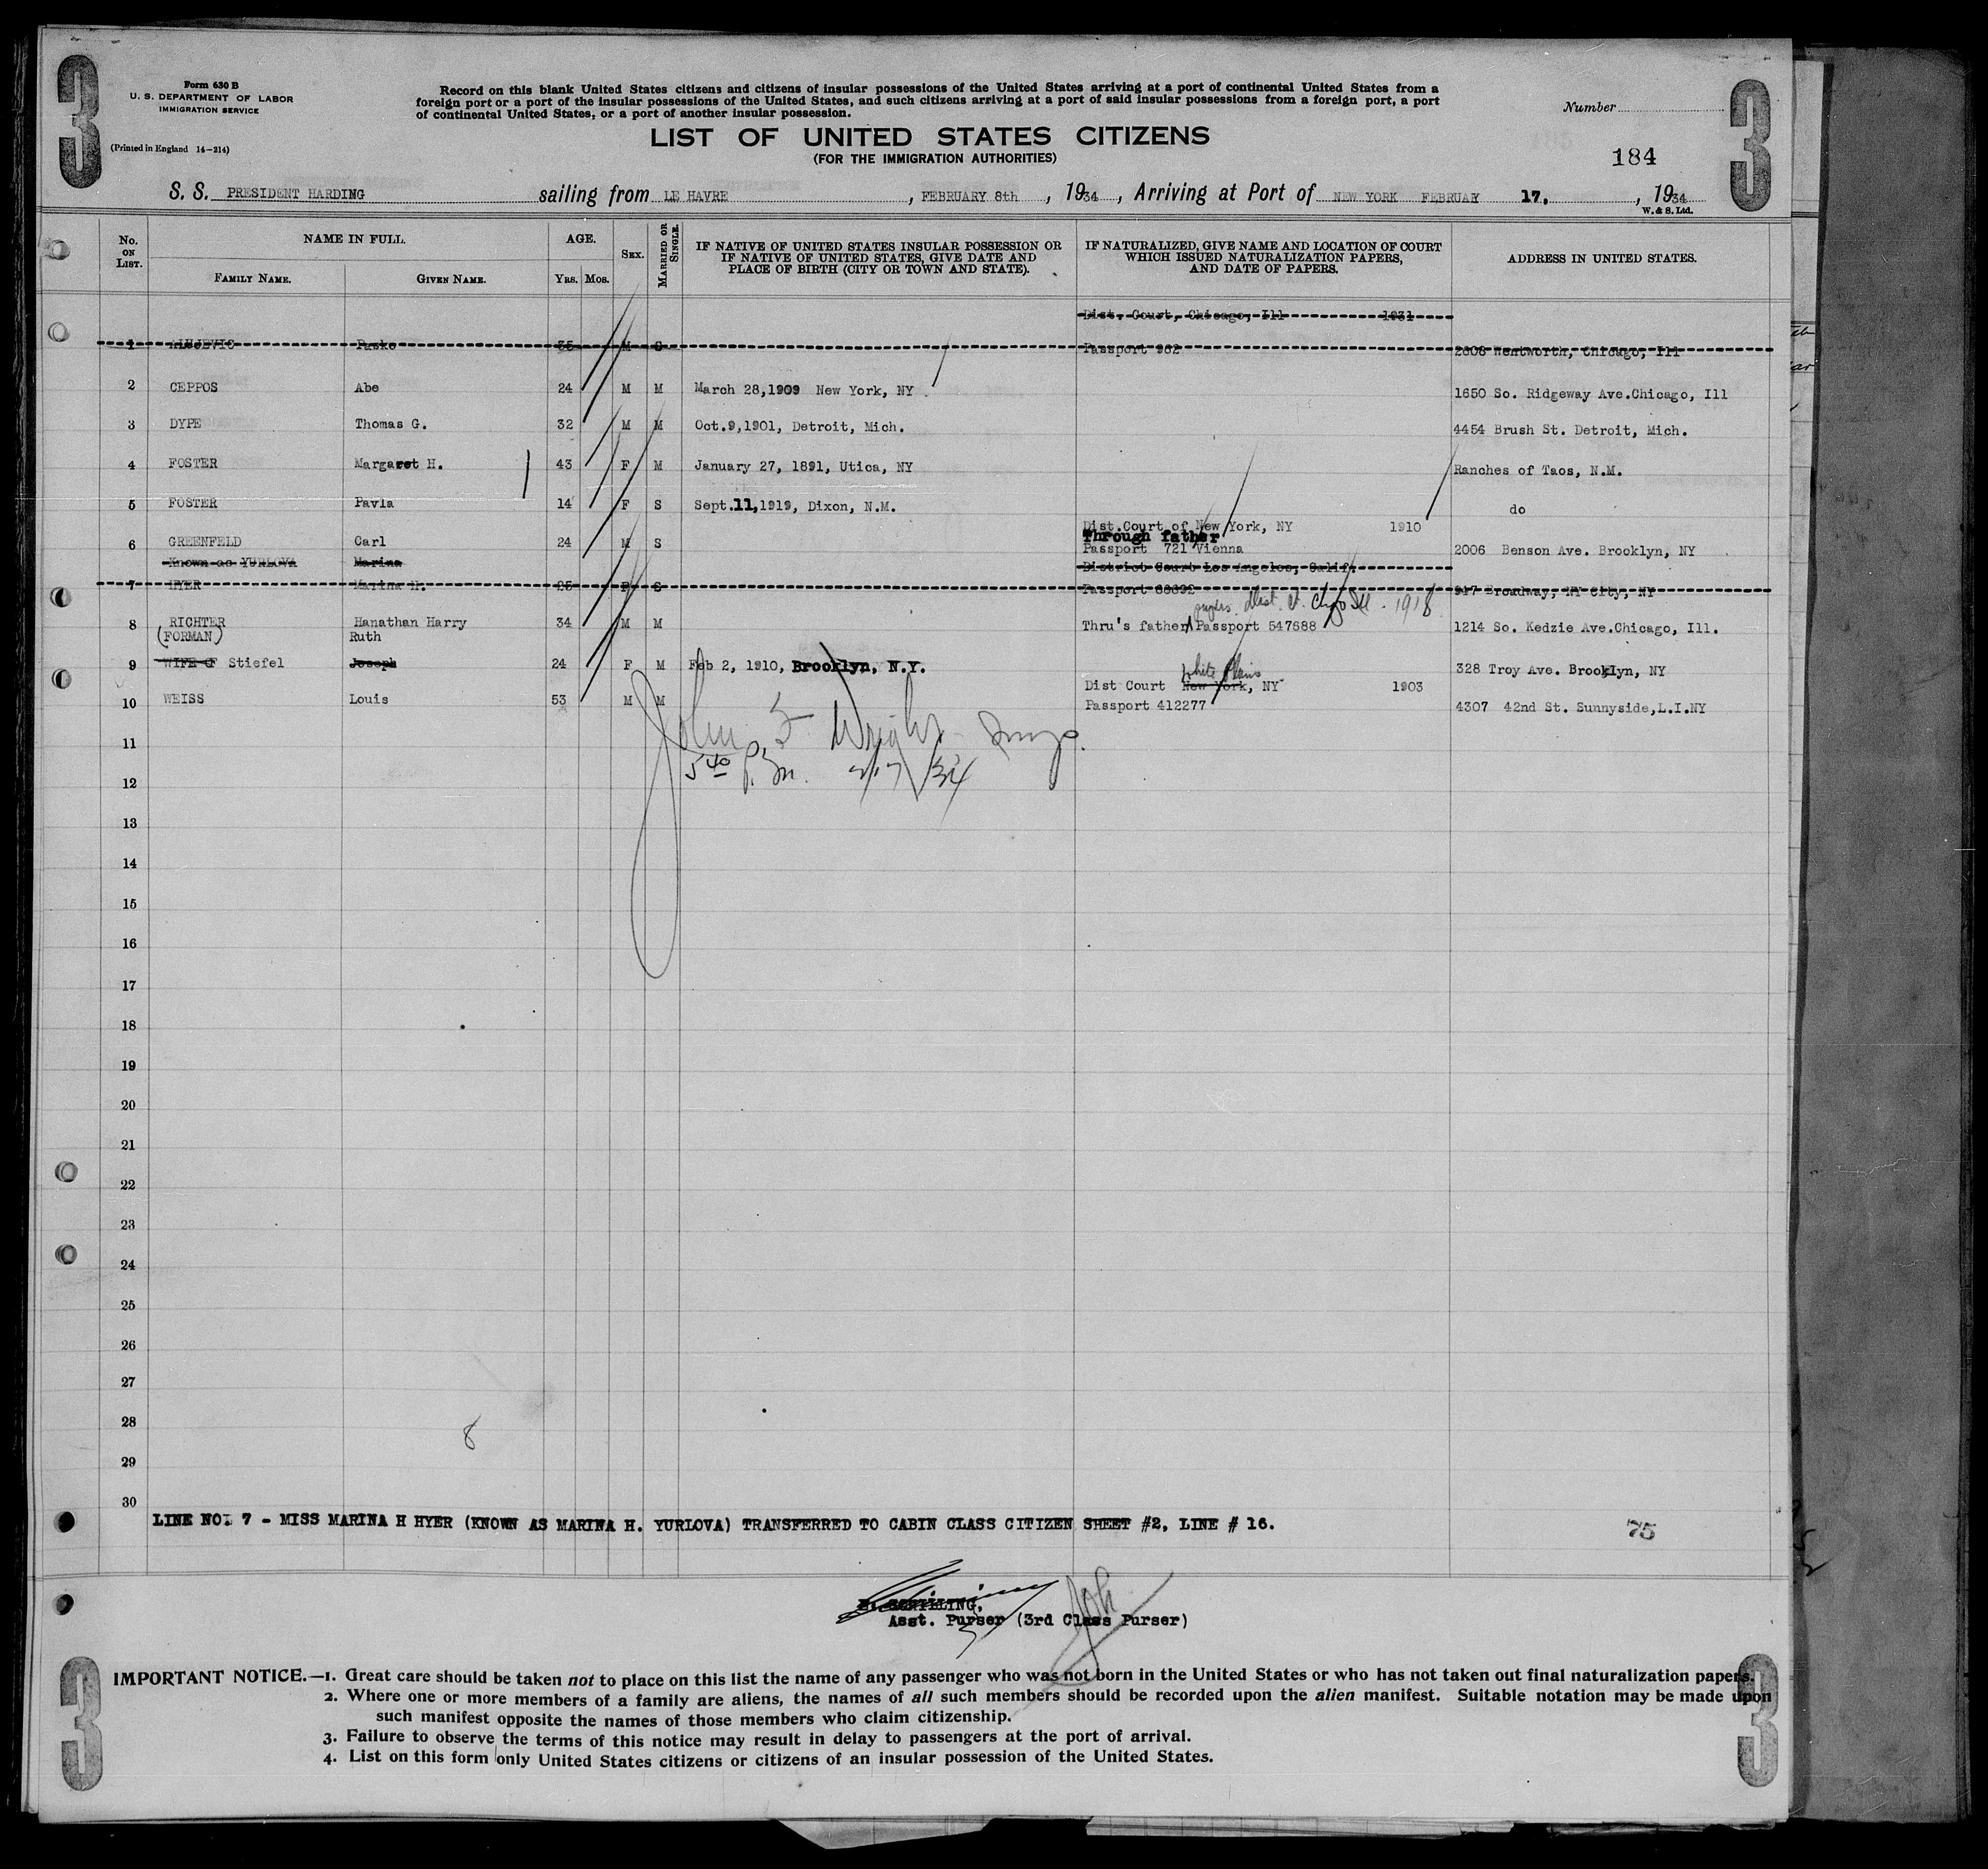 3
3
Form 630 B
U. S. DEPARTMENT OF LABOR
IMMIGRATION SERVICE
(Printed in England 14-214)
Record on this blank United States citizens and citizens of insular possessions of the United States arriving at a port of continental United States from a
foreign port or a port of the insular possessions of the United States, and such citizens arriving at a port of said insular possessions from a foreign port, a port
of continental United States, or a port of another insular possession.
Number
LIST OF UNITED STATES CITIZENS
(FOR THE IMMIGRATION AUTHORITIES)
184
S. S. PRESIDENT HARDING sailing from LE HAVRE , FEBRUARY 8th , 1934 , Arriving at Port of NEW YORK FEBRUARY 17. , 1934
W. & S. Ltd.
No. ON LIST. NAME IN FULL. AGE. SEX. MARRIED OR SINGLE. IF NATIVE OF UNITED STATES INSULAR POSSESSION OR IF NATIVE OF UNITED STATES, GIVE DATE AND PLACE OF BIRTH (CITY OR TOWN AND STATE). IF NATURALIZED, GIVE NAME AND LOCATION OF COURT WHICH ISSUED NATURALIZATION PAPERS, AND DATE OF PAPERS. ADDRESS IN UNITED STATES.
FAMILY NAME. GIVEN NAME. YRS. MOS.
Dist. Court, Chicago, Ill 1931
1 Pasko 35 M S Passport 962 2608 Wentworth, Chicago, Ill
2 CEPPOS Abe 24 M M March 28,1909 New York, NY 1650 So. Ridgeway Ave.Chicago, Ill
3 DYPE Thomas G. 32 M M Oct.9,1901, Detroit, Mich. 4454 Brush St. Detroit, Mich.
4 FOSTER Margaret H. 43 F M January 27, 1891, Utica, NY Ranches of Taos, N.M.
5 FOSTER Pavla 14 F S Sept.11,1919, Dixon, N.M. do
Dist.Court of New York, NY 1910
Through father
6 GREENFELD Carl 24 M S Passport 721 Vienna 2006 Benson Ave. Brooklyn, NY
Known as YURLOVA Marina District Court Los Angeles, Calif.
7 HYER Marina H. S Passport 917 Broadway, NY City, NY
Dist. Ct. Chgo Ill. 1918
8 RICHTER Hanathan Harry 34 M M Thru's father Passport 547688 1214 So. Kedzie Ave.Chicago, Ill.
(FORMAN) Ruth
9 WIFE OF Stiefel Joseph 24 F M Feb 2, 1910, Brooklyn, N.Y. 328 Troy Ave. Brooklyn, NY
White Plains
Dist Court New York, NY 1903
10 WEISS Louis 53 M M Passport 412277 4307 42nd St. Sunnyside,L.I.NY
John F Wright Insp.
5 40 P.M. 2/17/34
11
12
13
14
15
16
17
18
19
20
21
22
23
24
25
26
27
28
8
29
30
LINE NO. 7 - MISS MARINA H HYER (KNOWN AS MARINA H. YURLOVA) TRANSFERRED TO CABIN CLASS CITIZEN SHEET #2, LINE # 16.
75
SCHILLING,
Asst. Purser (3rd Class Purser)
3
3
IMPORTANT NOTICE.—1. Great care should be taken not to place on this list the name of any passenger who was not born in the United States or who has not taken out final naturalization papers.
2. Where one or more members of a family are aliens, the names of all such members should be recorded upon the alien manifest. Suitable notation may be made upon
such manifest opposite the names of those members who claim citizenship.
3. Failure to observe the terms of this notice may result in delay to passengers at the port of arrival.
4. List on this form only United States citizens or citizens of an insular possession of the United States.